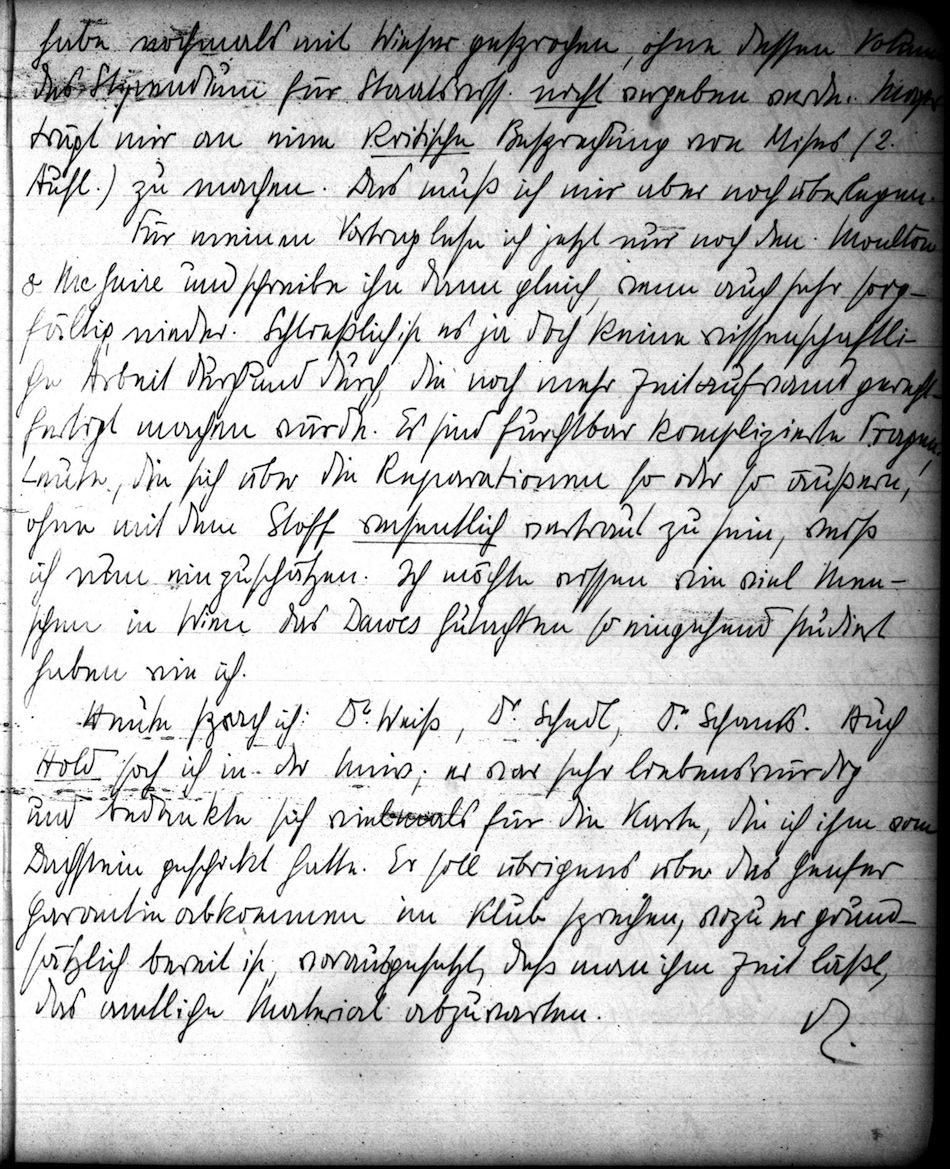 habe nochmals mit Wieser gesprochen, ohne dessen Votum
das Stipendium für Staatswiss. nicht vergeben werde. Mayer
trägt mir an eine kritische Besprechung von Mises (2.
Aufl.) zu machen. Das muß ich mir aber noch überlegen.
Für meinen Vortrag lese ich jetzt nur noch den Moulton
& McGuire und schreibe ihn dann gleich, wenn auch sehr sorg-
fältig nieder. Schließlich ist es ja doch keine wissenschaftli-
che Arbeit durch und durch, die noch mehr Zeitaufwand gerecht-
fertigt machen würde. Es sind furchtbar komplizierte Fragen,
Leute, die sich über die Reparationen so oder so äußern,
ohne mit dem Stoff wesentlich vertraut zu sein, weiß
ich nun einzuschätzen. Ich möchte wissen wie viel Men-
schen in Wien das Dawes Gutachten so eingehend studiert
haben wie ich.
Heute sprach ich: Dr. Weiß, Dr. Schedl, Dr. Schams. Auch
Hold sah ich in der Univ; er war sehr liebenswürdig
und bedankte sich vielmals für die Karte, die ich ihm vom
Dachstein geschickt hatte. Er soll übrigens über das Genfer
Garantieabkommen im Klub sprechen, wozu er grund-
sätzlich bereit ist, vorausgesetzt, daß man ihm Zeit läßt,
das amtliche Material abzuwarten.